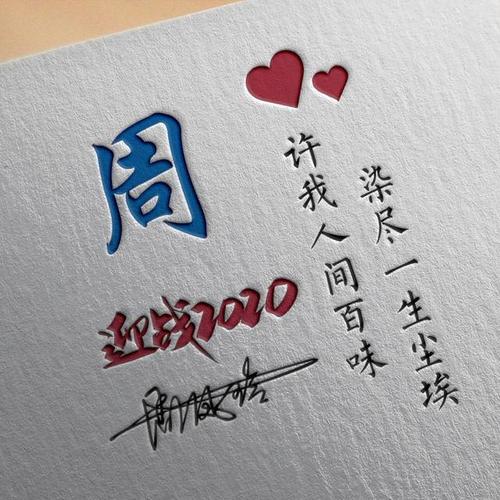 周
迎战2020
染尽一生尘埃
许我人间百味